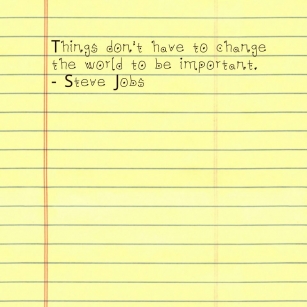 Things don't have to change
the world to be important.
- Steve Jobs